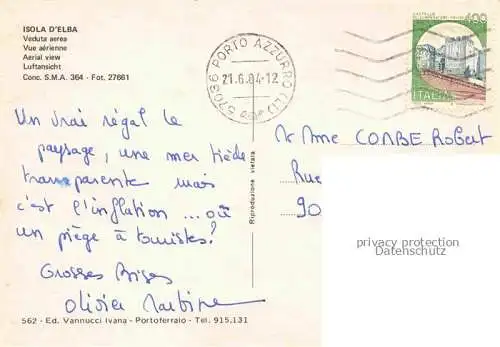 ISOLA D'ELBA
Veduta aerea
Vue aérienne
Aerial view
Luftansicht
Conc. S.M.A. 364 - Fot. 27661
57036 PORTO AZZURRO (LI)
21.6.84-12
400
ITALIA
Un vrai régal le
paysage, une mer tiède
transparente mais
c'est l'inflation ... où
un piège à touristes?
Grosses Bises
Olivier Martine
Mr Mme COMBE Robert
Rue
90
Riproduzione vietata
privacy protection
Datenschutz
562 - Ed. Vannucci Ivana - Portoferraio - Tel. 915.131